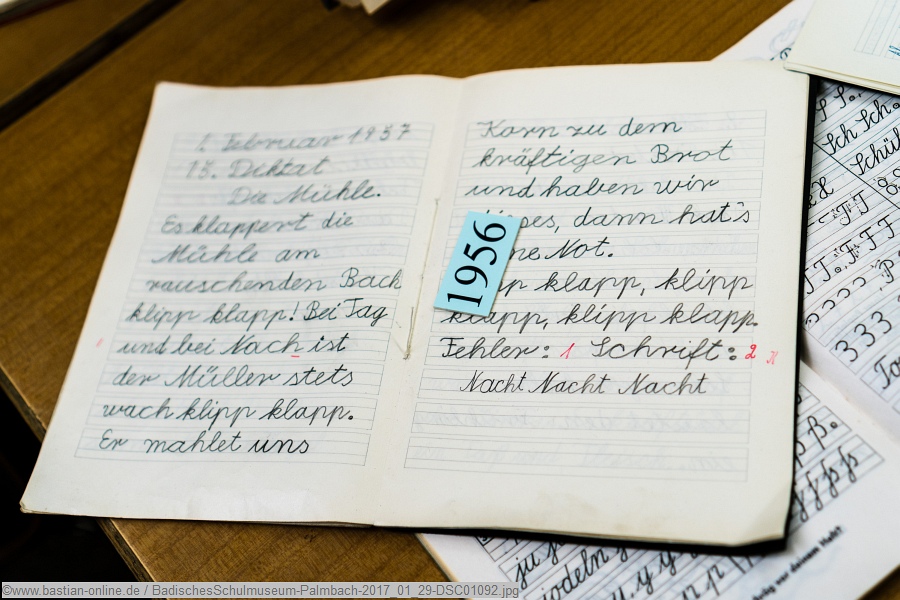 1. Februar 1957
13. Diktat
Die Mühle.
Es klappert die
Mühle am
rauschenden Bach
klipp klapp! Bei Tag
und bei Nach ist
der Müller stets
wach klipp klapp.
Er mahlet uns
Korn zu dem
kräftigen Brot
und haben wir
dann hat's
Not.
klapp, klipp
klapp, klipp klapp.
Fehler: 1 Schrift: 2
Nacht Nacht Nacht
1956
Sch Sch.
333
jodeln
©www.bastian-online.de / BadischesSchulmuseum-Palmbach-2017_01_29-DSC01092.jpg